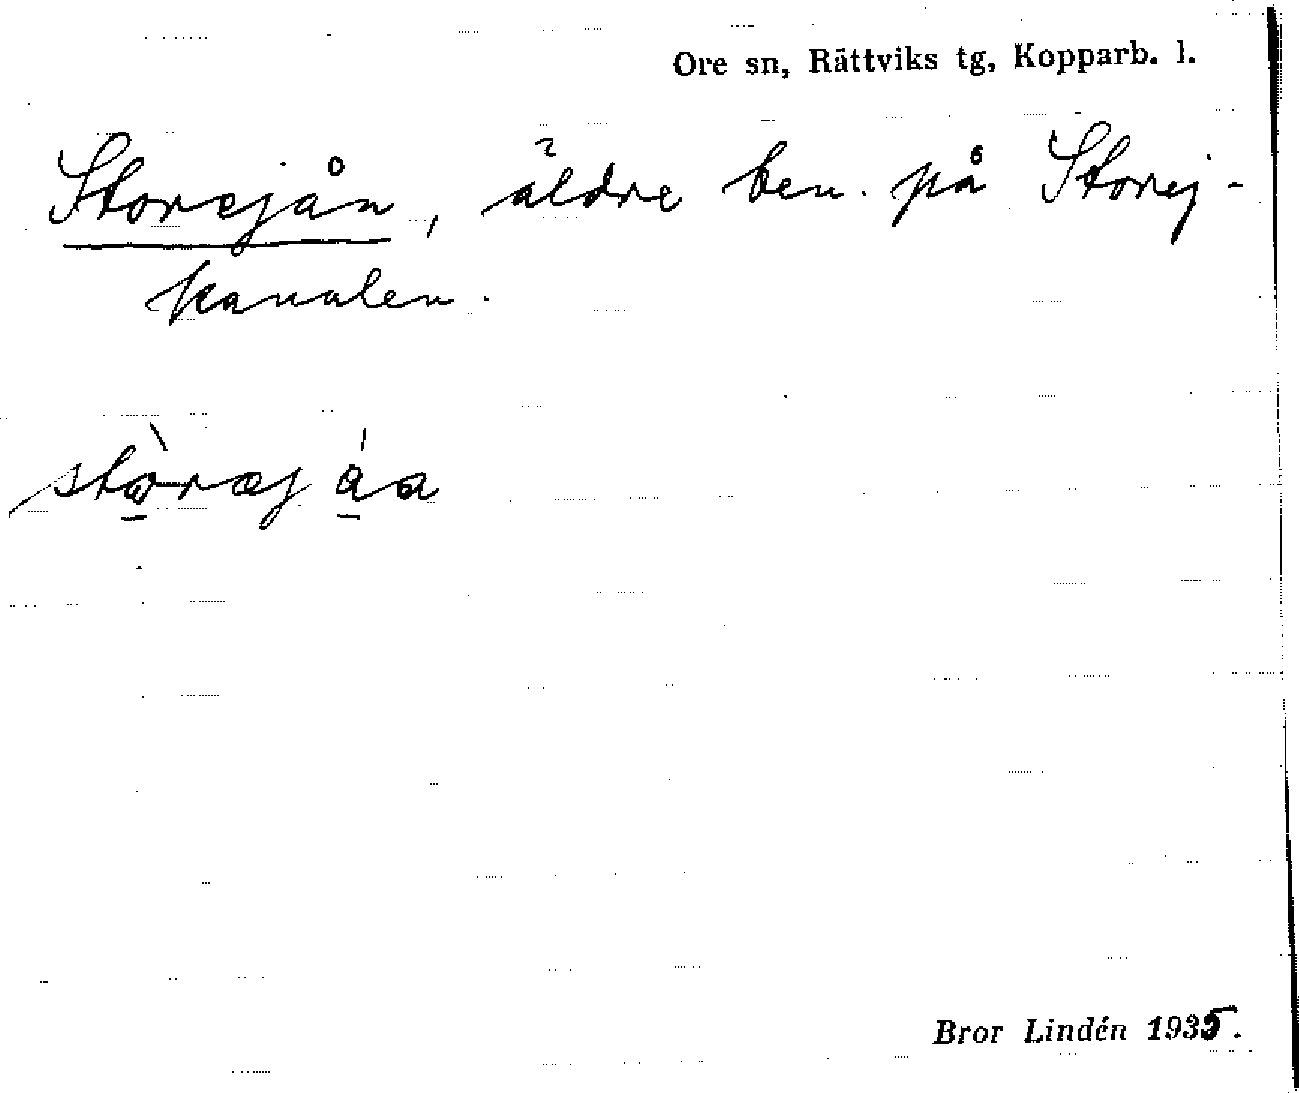 Ore sn, Rättviks tg, Kopparb. l.
Storejån, äldre ben. på Storej-
kanalen.
stòræj áa
Bror Lindén 1935.